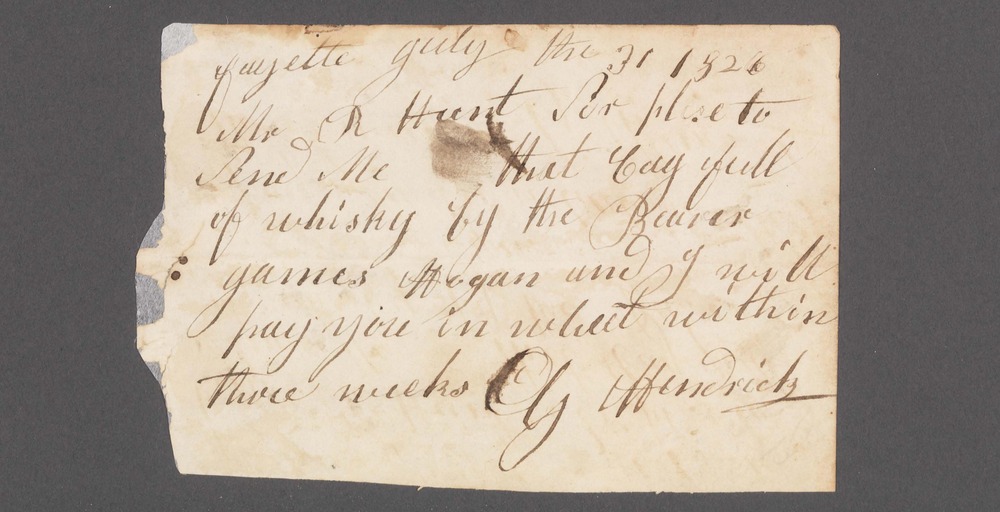 fayette guly the 31 1826
Mr R Hunt Sir plese to
Send Me that Cag full
of whisky by the Bearer
games Hogan and I will
pay you in wheet within
three weeks Ely Hendrick